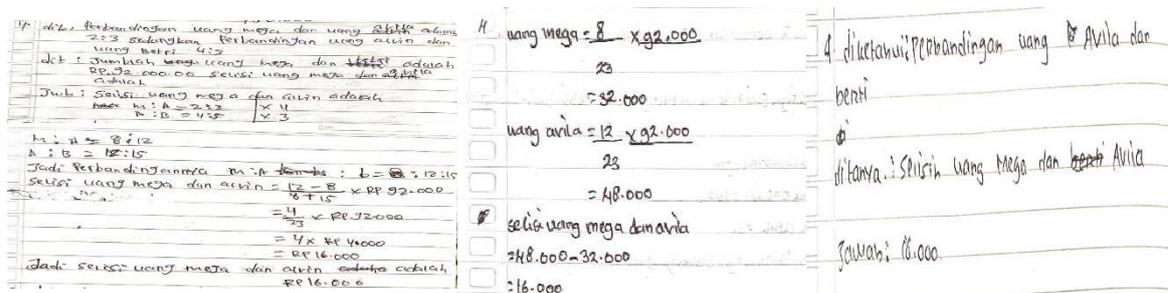 4. dik: Perbandingan uang mega dan uang adalah
2:3 sedangkan Perbandingan uang alvin dan
uang Betri 4:5
dit: Jumlah uang mega dan adalah
RP.92.000.00 selisi uang mega dan
adalah
Jwb: selisi uang mega dan alvin adalah
M : A = 2:3 | x 4
A : B = 4:5 | x 3
M : A = 8:12
A : B = 12:15
Jadi Perbandingannya M : A : b = 8 : 12:15
selisi uang mega dan alvin = 12 - 8 x RP 92.000
8 + 15
= 4 x RP.92000
23
= 4 x RP 4000
= RP 16.000
Jadi selisi uang mega dan alvin adalah
RP 16.000
4 uang mega = 8 x 92.000
23
= 32.000
uang avila = 12 x 92.000
23
= 48.000
selisi uang mega dan avila
= 48.000 - 32.000
= 16.000
4. diketahui: perbandingan uang Avila dan
benti
ditanya : selisih uang Mega dan Avila
Jawab: 16.000